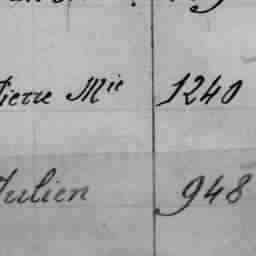 Pierre Mie 1240
Julien 948